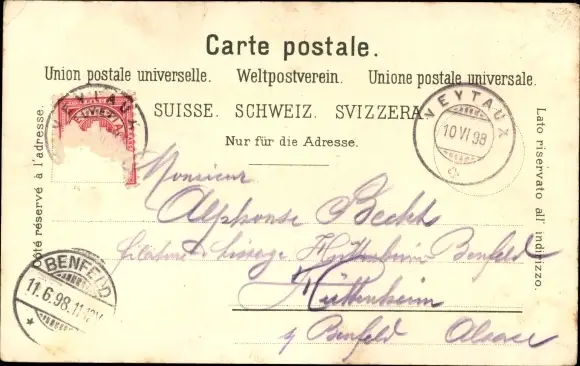 Carte postale.
Union postale universelle. Weltpostverein. Unione postale universale.
SUISSE. SCHWEIZ. SVIZZERA
Nur für die Adresse.
Côté réservé à l'adresse.
Lato riservato all' indirizzo.
VEYTAUX
VEYTAUX
10 VI 98
Monsieur
Alphonse
filature & tissage Hüttenheim Benfeld
Hüttenheim
Benfeld Alsace
BENFELD
11.6.98.11-12V